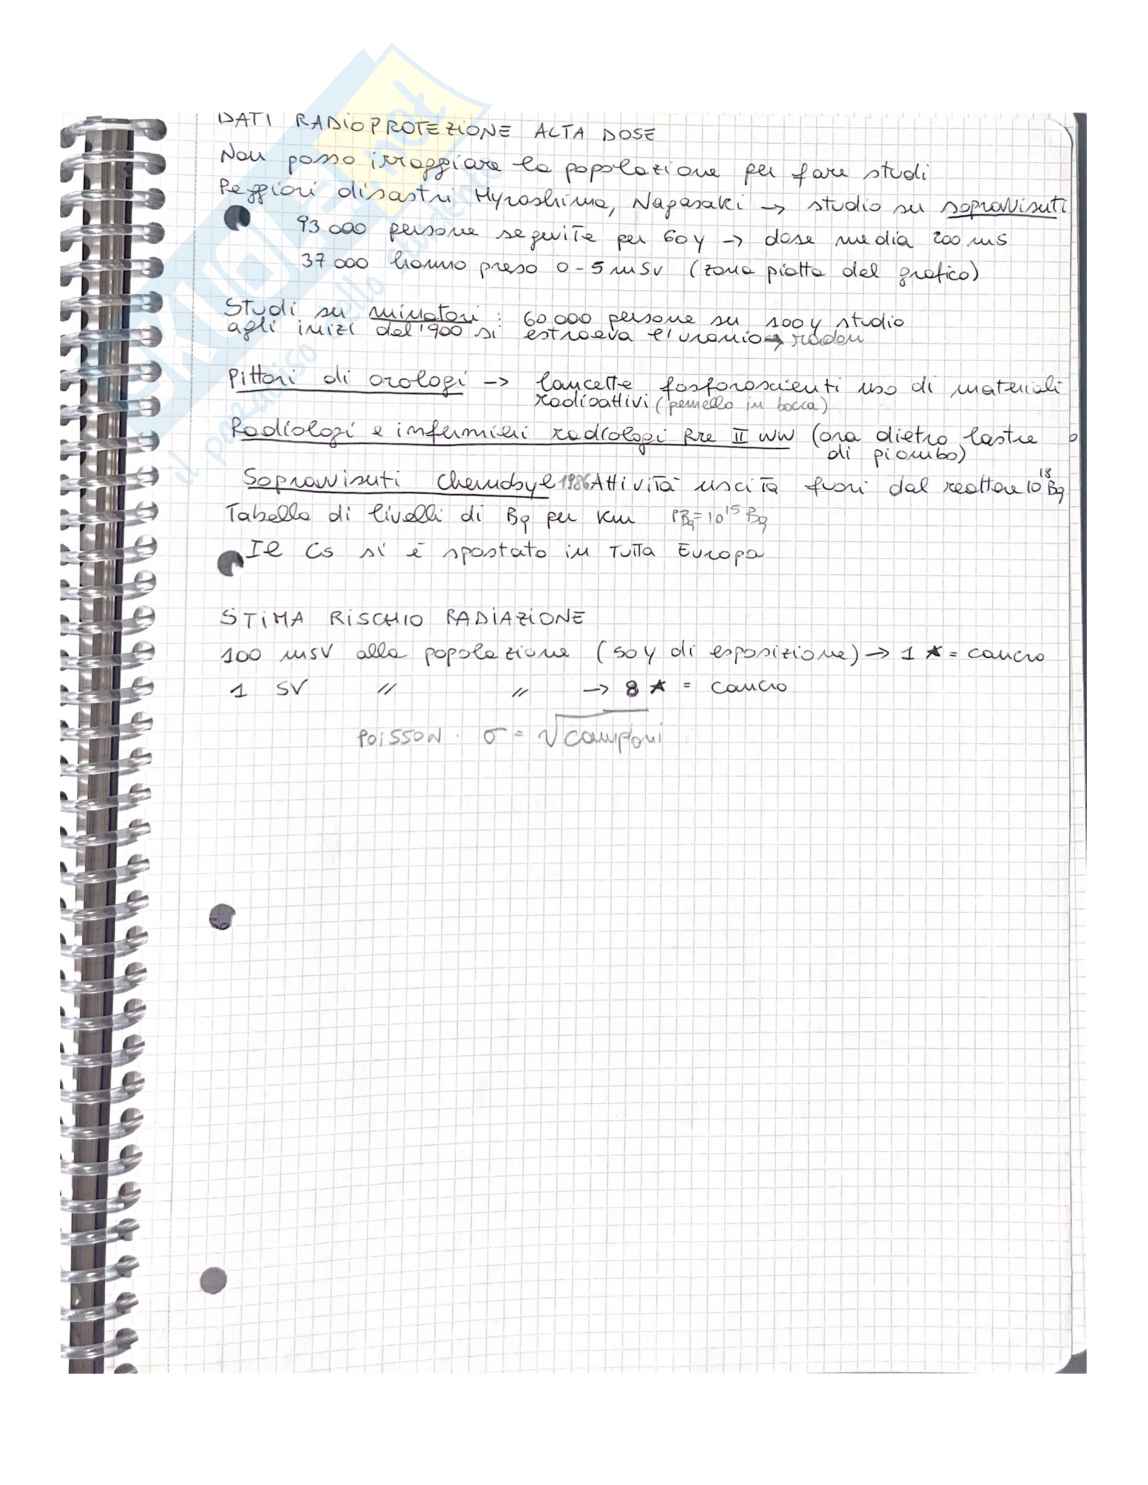 DATI RADIOPROTEZIONE ALTA DOSE
Non posso irraggiare la popolazione per fare studi
Peggiori disastri Hyroshima, Nagasaki → studio su sopravvisuti
93 000 persone seguite per 60 y → dose media 200 mS
37 000 hanno preso 0-5 mSv (zona piatta del grafico)
Studi su minatori : 60 000 persone su 100 y studio
agli inizi del '900 si estraeva l'uranio → radon
Pittori di orologi → lancette fosforoscienti uso di materiali
radioattivi (pennello in bocca)
Radiologi e infermieri radiologi Pre II WW (ora dietro lastre
di piombo)
Sopravvisuti Chernobyl 1986 Attività uscita fuori dal reattore 10¹⁸ Bq
Tabella di livelli di Bq per Km PBq = 10¹⁵ Bq
Il Cs si è spostato in tutta Europa
STIMA RISCHIO RADIAZIONE
100 mSV alla popolazione (50 y di esposizione) → 1 ★ = cancro
1 SV " " → 8 ★ = cancro
POISSON. σ = √campioni